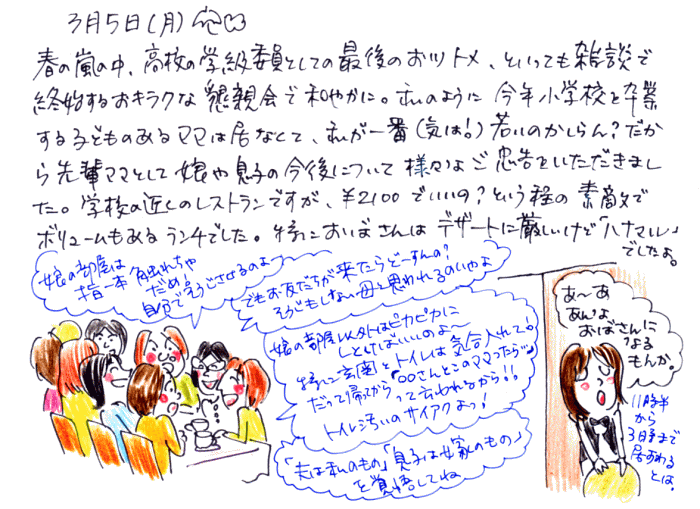 3月5日(月)
春の嵐の中、高校の学級委員としての最後のおツトメ、といっても雑談で
終始するおキラクな懇親会で和やかに。私のように今年小学校を卒業
する子どものあるママは居なくて、私が一番(気は!)若いのかしらん?だか
ら先輩ママとして娘や息子の今後について様々なご忠告をいただきまし
た。学校の近くのレストランですが、¥2100でいいの?という程の素敵で
ボリュームもあるランチでした。特におばさんはデザートに厳しいけど「ハナマル」
でしたよ。
娘の部屋は
指一本触れちゃ
だめ。
自分でそうじさせるのよ〜
でもお友だちが来たらどーすんの?
そうじもしない母と思われるのいやよ
娘の部屋以外はピカピカに
しとけばいいのよ〜
特に玄関とトイレは気合入れて!
だって帰ってから「〇〇さんとこのママったらッ」
って言われるから!!
トイレ汚いのサイアクよっ!
「夫は私のもの」「息子は嫁のもの」
を覚悟してね
あ〜あ
あんな
おばさんに
なる
もんか。
11時半
から
3時まで
居すわる
とは。